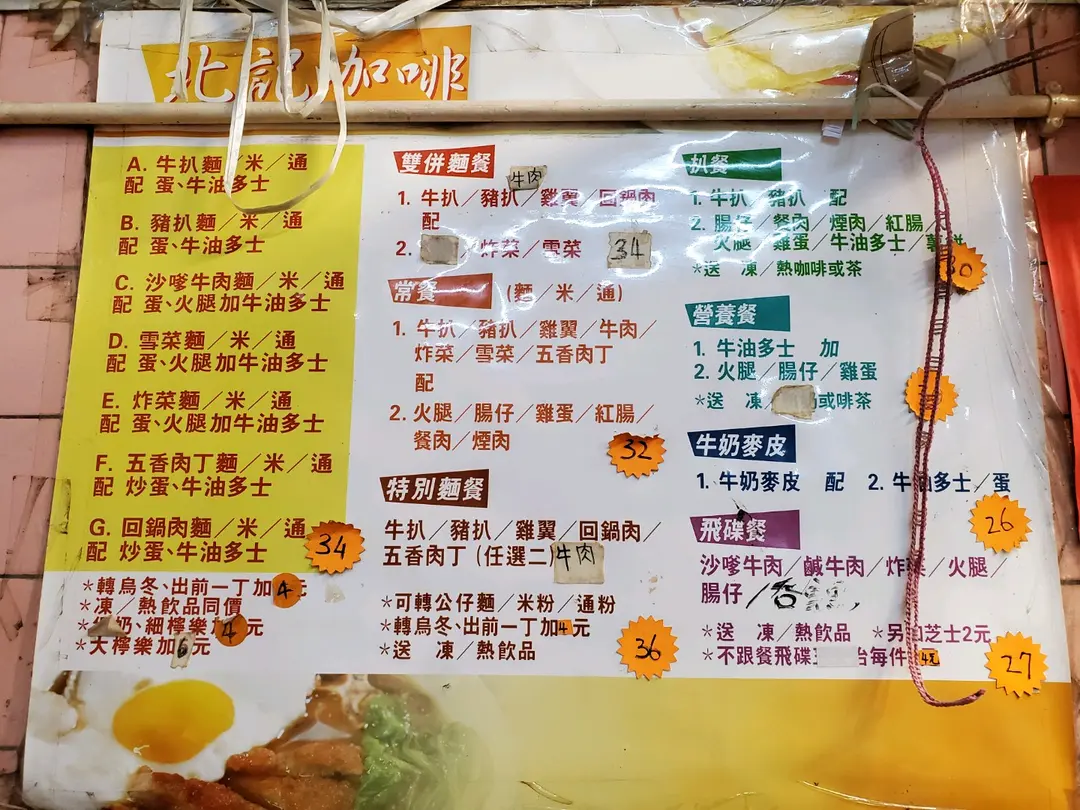 北記咖啡
A. 牛扒麵／米／通
配 蛋、牛油多士
B. 豬扒麵／米／通
配 蛋、牛油多士
C. 沙嗲牛肉麵／米／通
配 蛋、火腿加牛油多士
D. 雪菜麵／米／通
配 蛋、火腿加牛油多士
E. 炸菜麵／米／通
配 蛋、火腿加牛油多士
F. 五香肉丁麵／米／通
配 炒蛋、牛油多士
G. 回鍋肉麵／米／通
配 炒蛋、牛油多士
34
*轉烏冬、出前一丁加4元
*凍／熱飲品同價
奶、細檸樂加4元
*大檸樂加6元
雙併麵餐
牛肉
1. 牛扒／豬扒／雞翼／回鍋肉
配
2. ／炸菜／雪菜 34
常餐 (麵／米／通)
1. 牛扒／豬扒／雞翼／牛肉／
炸菜／雪菜／五香肉丁
配
2. 火腿／腸仔／雞蛋／紅腸／
餐肉／煙肉
32
特別麵餐
牛扒／豬扒／雞翼／回鍋肉／
五香肉丁 (任選二) 牛肉
*可轉公仔麵／米粉／通粉
*轉烏冬、出前一丁加4元
*送 凍／熱飲品
36
扒餐
1. 牛扒／豬扒 配
2. 腸仔／餐肉／煙肉／紅腸／
火腿／雞蛋／牛油多士／
*送 凍／熱咖啡或茶
30
營養餐
1. 牛油多士 加
2. 火腿／腸仔／雞蛋
*送 凍／ 或啡茶
牛奶麥皮
1. 牛奶麥皮 配 2. 牛油多士／蛋
26
飛碟餐
沙嗲牛肉／鹹牛肉／炸菜／火腿／
腸仔／
*送 凍／熱飲品 *另加芝士2元
*不跟餐飛碟 每件 4元
27